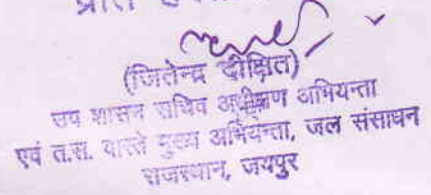 (जितेन्द्र दीक्षित)
उप शासन सचिव अधीक्षण अभियन्ता
एवं त.स. वास्ते मुख्य अभियन्ता, जल संसाधन
राजस्थान, जयपुर